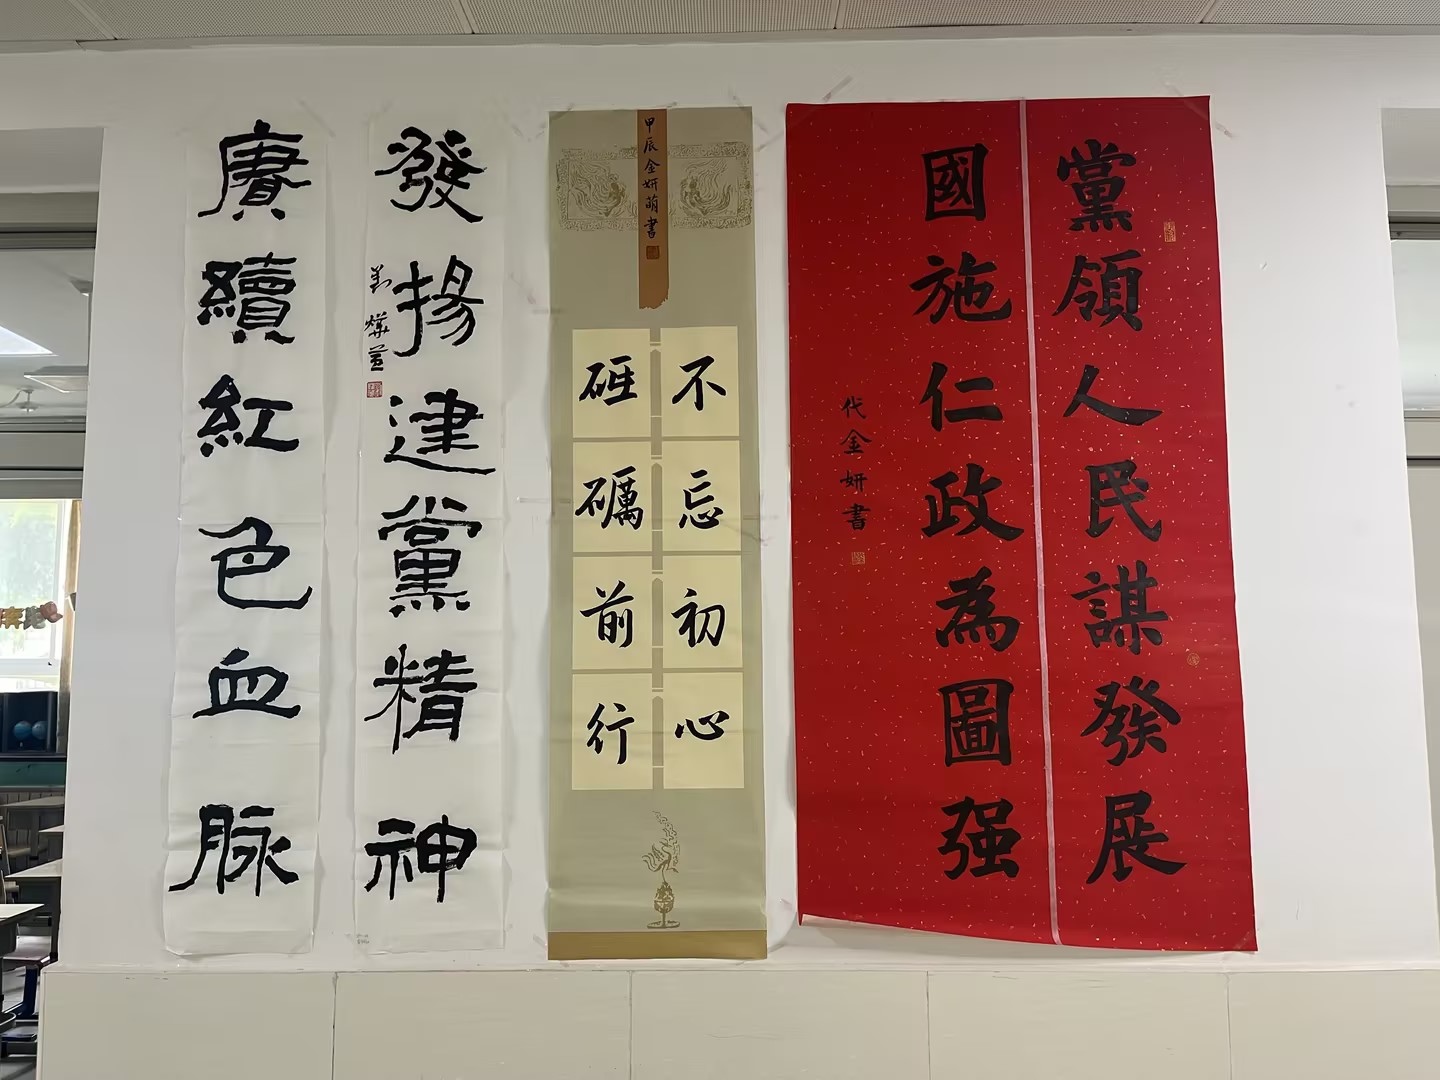 黨領人民謀發展
國施仁政為圖强
代金妍書
甲辰金妍萌書
不忘初心
砥礪前行
發揚建黨精神
賡續紅色血脉
刘燁萱